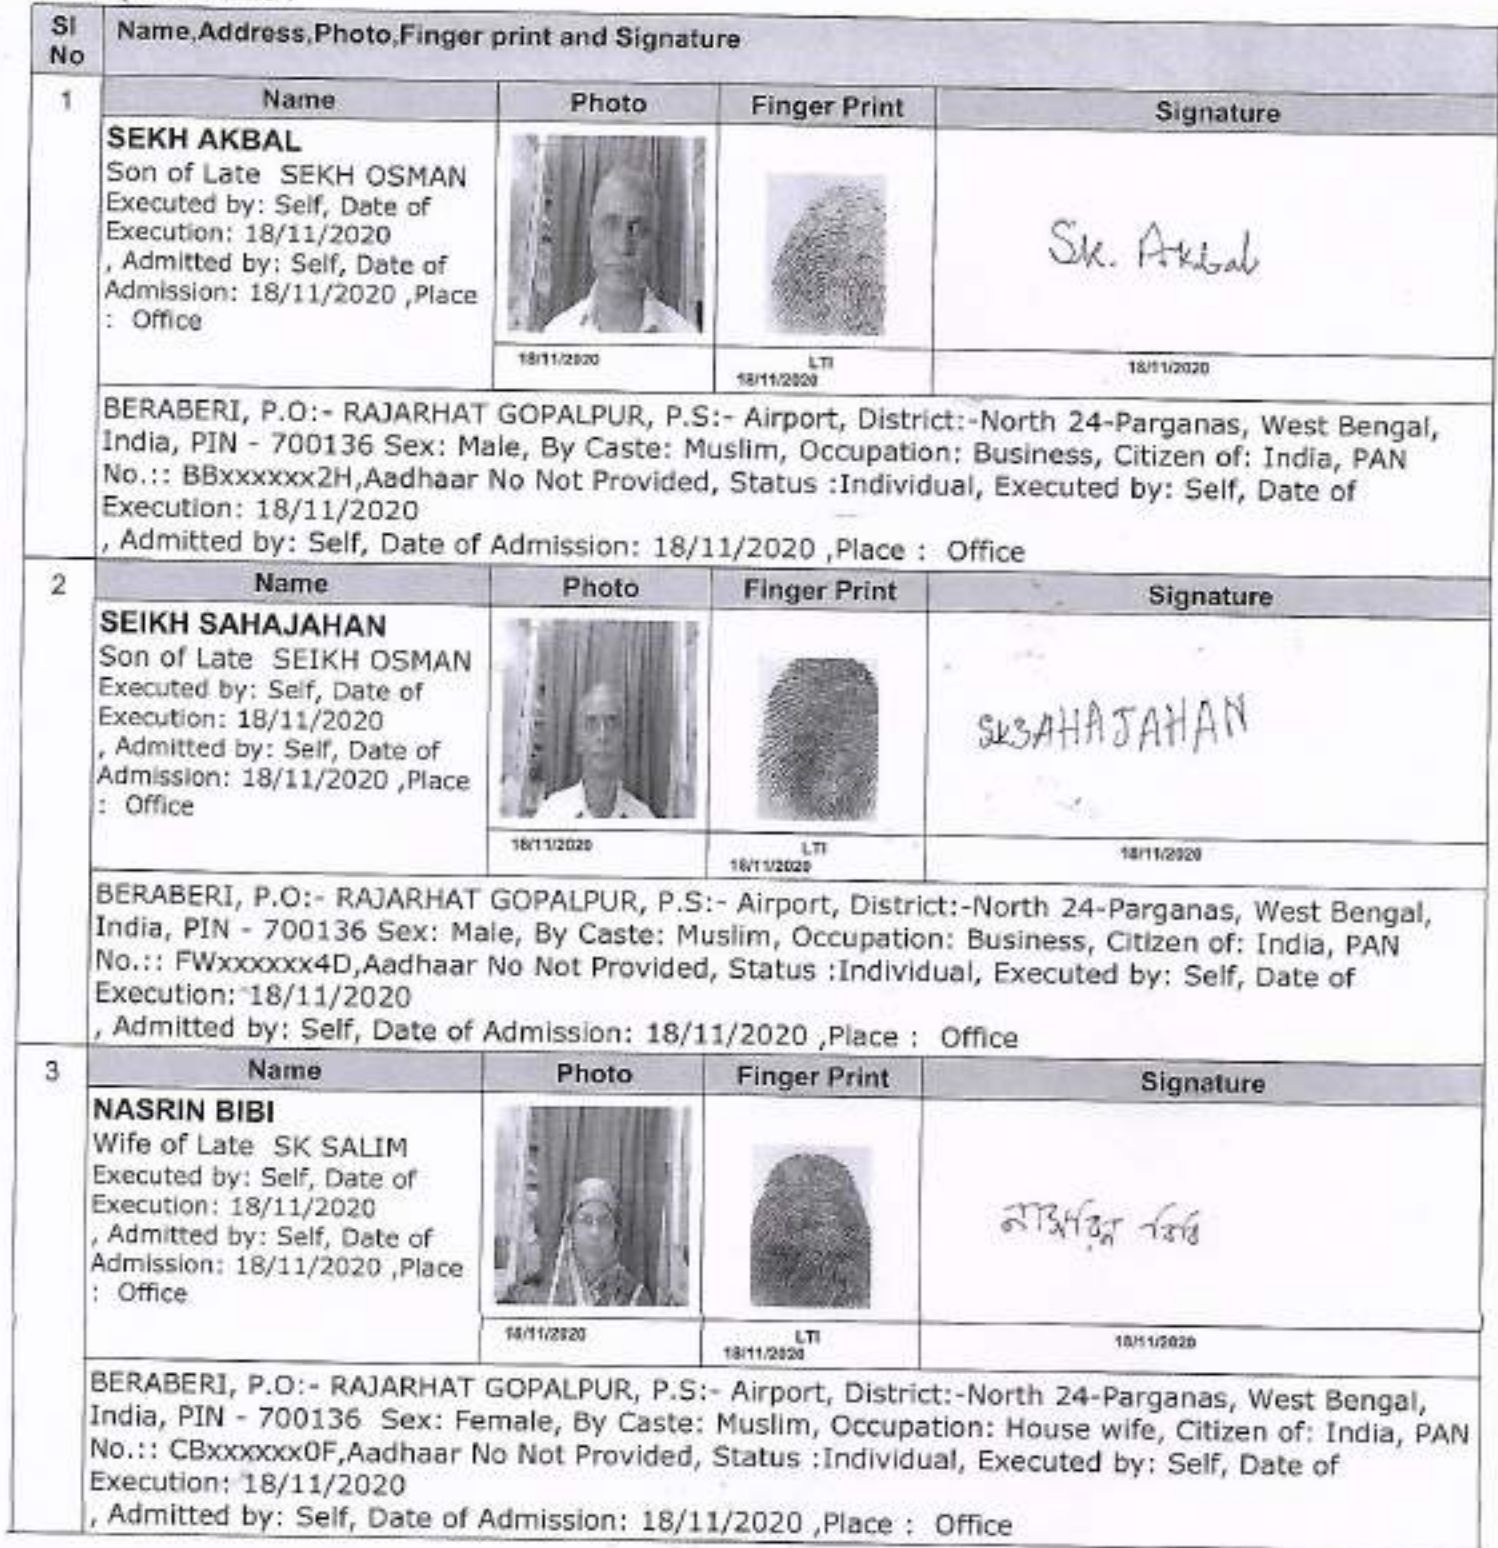 Sl No Name,Address,Photo,Finger print and Signature
1 Name Photo Finger Print Signature
SEKH AKBAL
Son of Late SEKH OSMAN
Executed by: Self, Date of
Execution: 18/11/2020
, Admitted by: Self, Date of
Admission: 18/11/2020 ,Place
: Office
Sk. Akbal
18/11/2020 LTI 18/11/2020 18/11/2020
BERABERI, P.O:- RAJARHAT GOPALPUR, P.S:- Airport, District:-North 24-Parganas, West Bengal,
India, PIN - 700136 Sex: Male, By Caste: Muslim, Occupation: Business, Citizen of: India, PAN
No.:: BBxxxxxx2H,Aadhaar No Not Provided, Status :Individual, Executed by: Self, Date of
Execution: 18/11/2020
, Admitted by: Self, Date of Admission: 18/11/2020 ,Place : Office
2 Name Photo Finger Print Signature
SEIKH SAHAJAHAN
Son of Late SEIKH OSMAN
Executed by: Self, Date of
Execution: 18/11/2020
, Admitted by: Self, Date of
Admission: 18/11/2020 ,Place
: Office
SK SAHAJAHAN
18/11/2020 LTI 18/11/2020 18/11/2020
BERABERI, P.O:- RAJARHAT GOPALPUR, P.S:- Airport, District:-North 24-Parganas, West Bengal,
India, PIN - 700136 Sex: Male, By Caste: Muslim, Occupation: Business, Citizen of: India, PAN
No.:: FWxxxxxx4D,Aadhaar No Not Provided, Status :Individual, Executed by: Self, Date of
Execution: 18/11/2020
, Admitted by: Self, Date of Admission: 18/11/2020 ,Place : Office
3 Name Photo Finger Print Signature
NASRIN BIBI
Wife of Late SK SALIM
Executed by: Self, Date of
Execution: 18/11/2020
, Admitted by: Self, Date of
Admission: 18/11/2020 ,Place
: Office
বিবি
18/11/2020 LTI 18/11/2020 18/11/2020
BERABERI, P.O:- RAJARHAT GOPALPUR, P.S:- Airport, District:-North 24-Parganas, West Bengal,
India, PIN - 700136 Sex: Female, By Caste: Muslim, Occupation: House wife, Citizen of: India, PAN
No.:: CBxxxxxx0F,Aadhaar No Not Provided, Status :Individual, Executed by: Self, Date of
Execution: 18/11/2020
, Admitted by: Self, Date of Admission: 18/11/2020 ,Place : Office